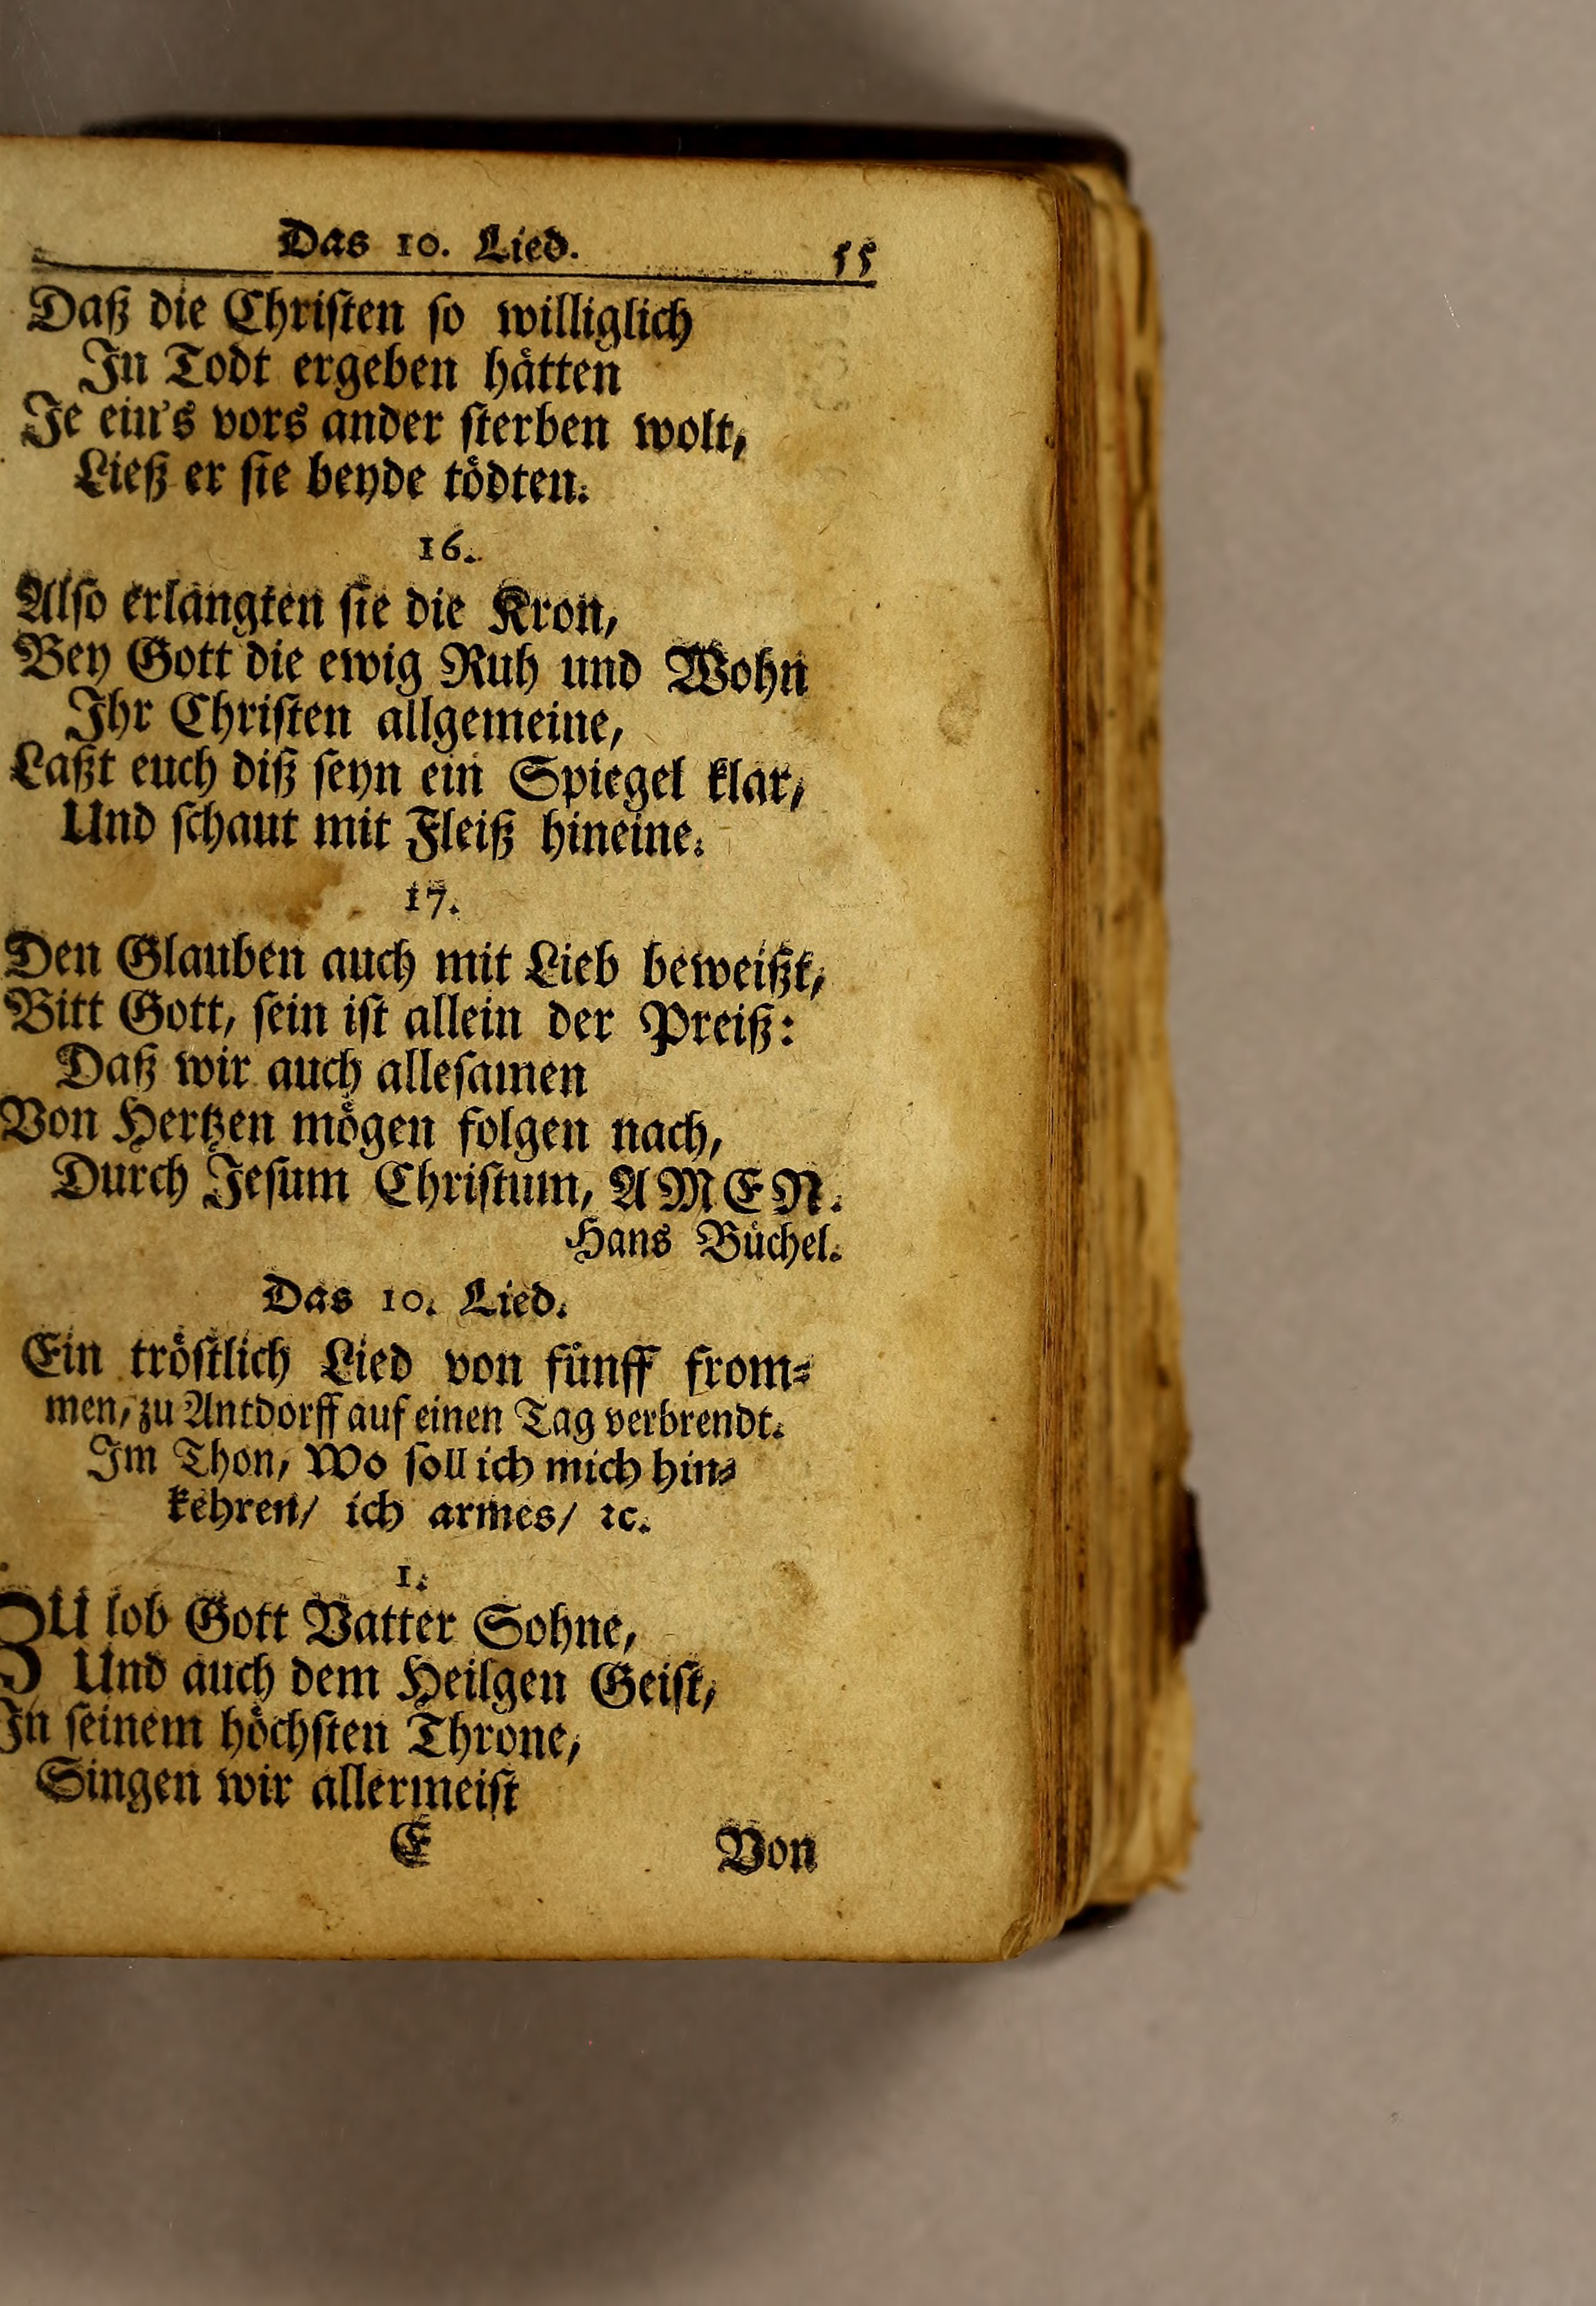 Das 10. Lied. 55
Daß die Chriſten ſo williglich
In Todt ergeben haͤtten
Je ein's vors ander ſterben wolt,
Ließ er ſie beyde toͤdten.
16.
Alſo erlangten ſie die Kron,
Bey Gott die ewig Ruh und Wohn
Ihr Chriſten allgemeine,
Laßt euch diß ſeyn ein Spiegel klar,
Und ſchaut mit Fleiß hineine.
17.
Den Glauben auch mit Lieb beweißt,
Bitt Gott, ſein iſt allein der Preiß:
Daß wir auch alleſamen
Von Hertzen moͤgen folgen nach,
Durch Jeſum Chriſtum, AMEN.
Hans Buͤchel.
Das 10. Lied.
Ein troͤſtlich Lied von fuͤnff from⸗
men, zu Antdorff auf einen Tag verbrendt.
Im Thon, Wo ſoll ich mich hin⸗
kehren/ ich armes/ ꝛc.
1.
ZU lob Gott Vatter Sohne,
Und auch dem Heilgen Geiſt,
In ſeinem hoͤchſten Throne,
Singen wir allermeiſt
E Von